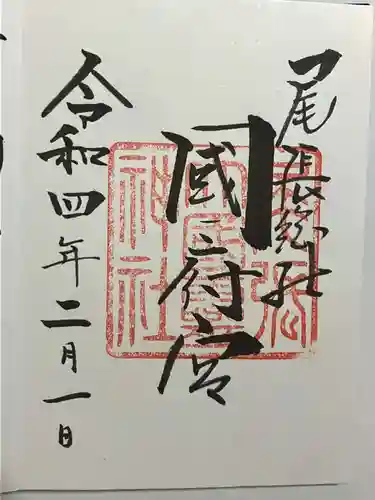 尾張総社
國府宮
令和四年二月一日